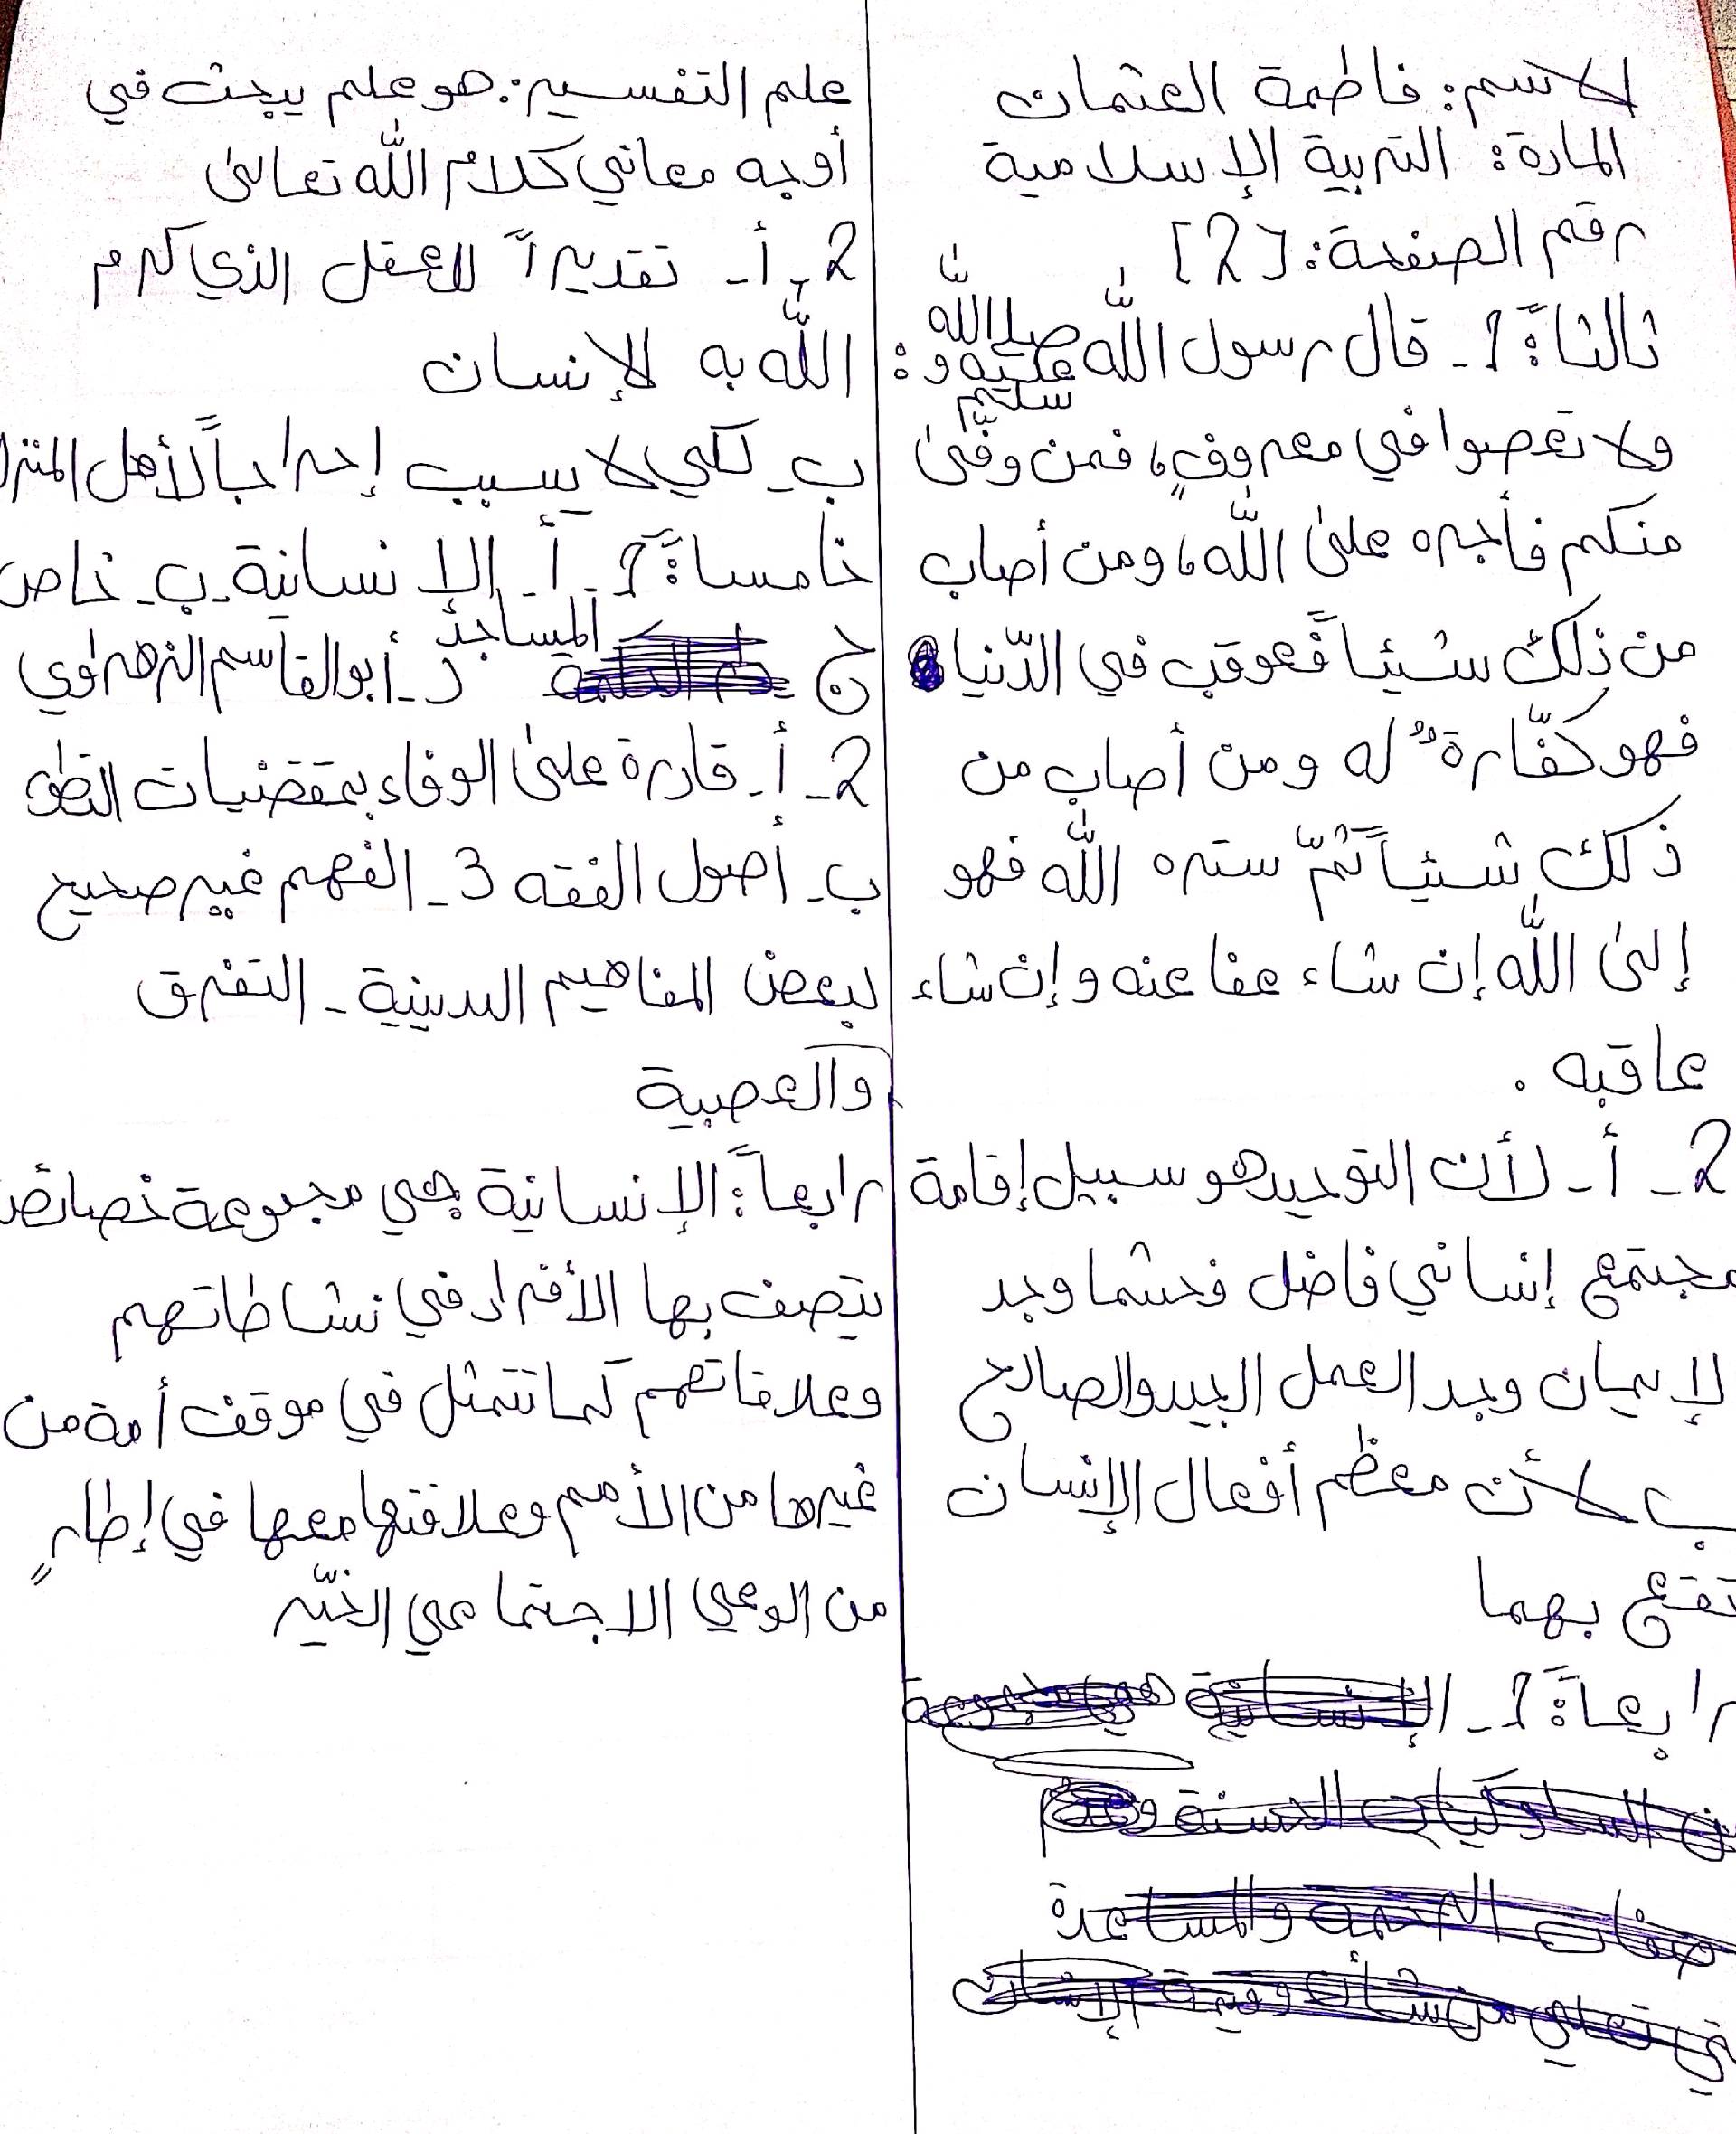 الاسم: فاطمة العثمان
المادة: التربية الإسلامية
رقم الصفحة: [2]
ثالثاً: 1- قال رسول اللّه صلى اللّه عليه و سلم:
ولا تعصوا في معروفٍ، فمن وفّىٰ
منكم فأجره علىٰ اللّه، ومن أصاب
من ذلك شيئاً فعوقب في الدّنيا
فهو كفّارةٌ له ومن أصاب من
ذلك شيئاً ثمّ ستره اللّه فهو
إلىٰ اللّه إن شاء عفا عنه وإن شاء
عاقبه .
2- أ- لأن التوحيد هو سبيل إقامة
مجتمع إنساني فاضل فحثما وجد
لإيمان وجد العمل الجيد والصالح
ب- لأن معظم أفعال الإنسان
تقع بهما
رابعاً: 1-
علم التفسير: هو علم يبحث في
أوجه معاني كلام اللّه تعالىٰ
2- أ- تقديراً للعقل الذي كرم
اللّه به لإنسان
ب- لكي لا يسبب إحراجاً لأهل المنزل
خامساً: 1- أ- الإنسانية ب- خاص
ج المساجد د- أبو القاسم الزهراوي
2- أ- قادرة علىٰ الوفاء بمقتضيات
ب- أصول الفقه 3- الفهم غير صحيح
لبعض المفاهيم الدينية - التفرق
والعصبية
رابعاً: الإنسانية هي مجموعة خصائص
يتصف بها الأفراد في نشاطاتهم
وعلاقاتهم كما تتمثل في موقف أمة من
غيرها من الأمم وعلاقتها معها في إطارٍ
من الوعي الاجتماعي الخيّر